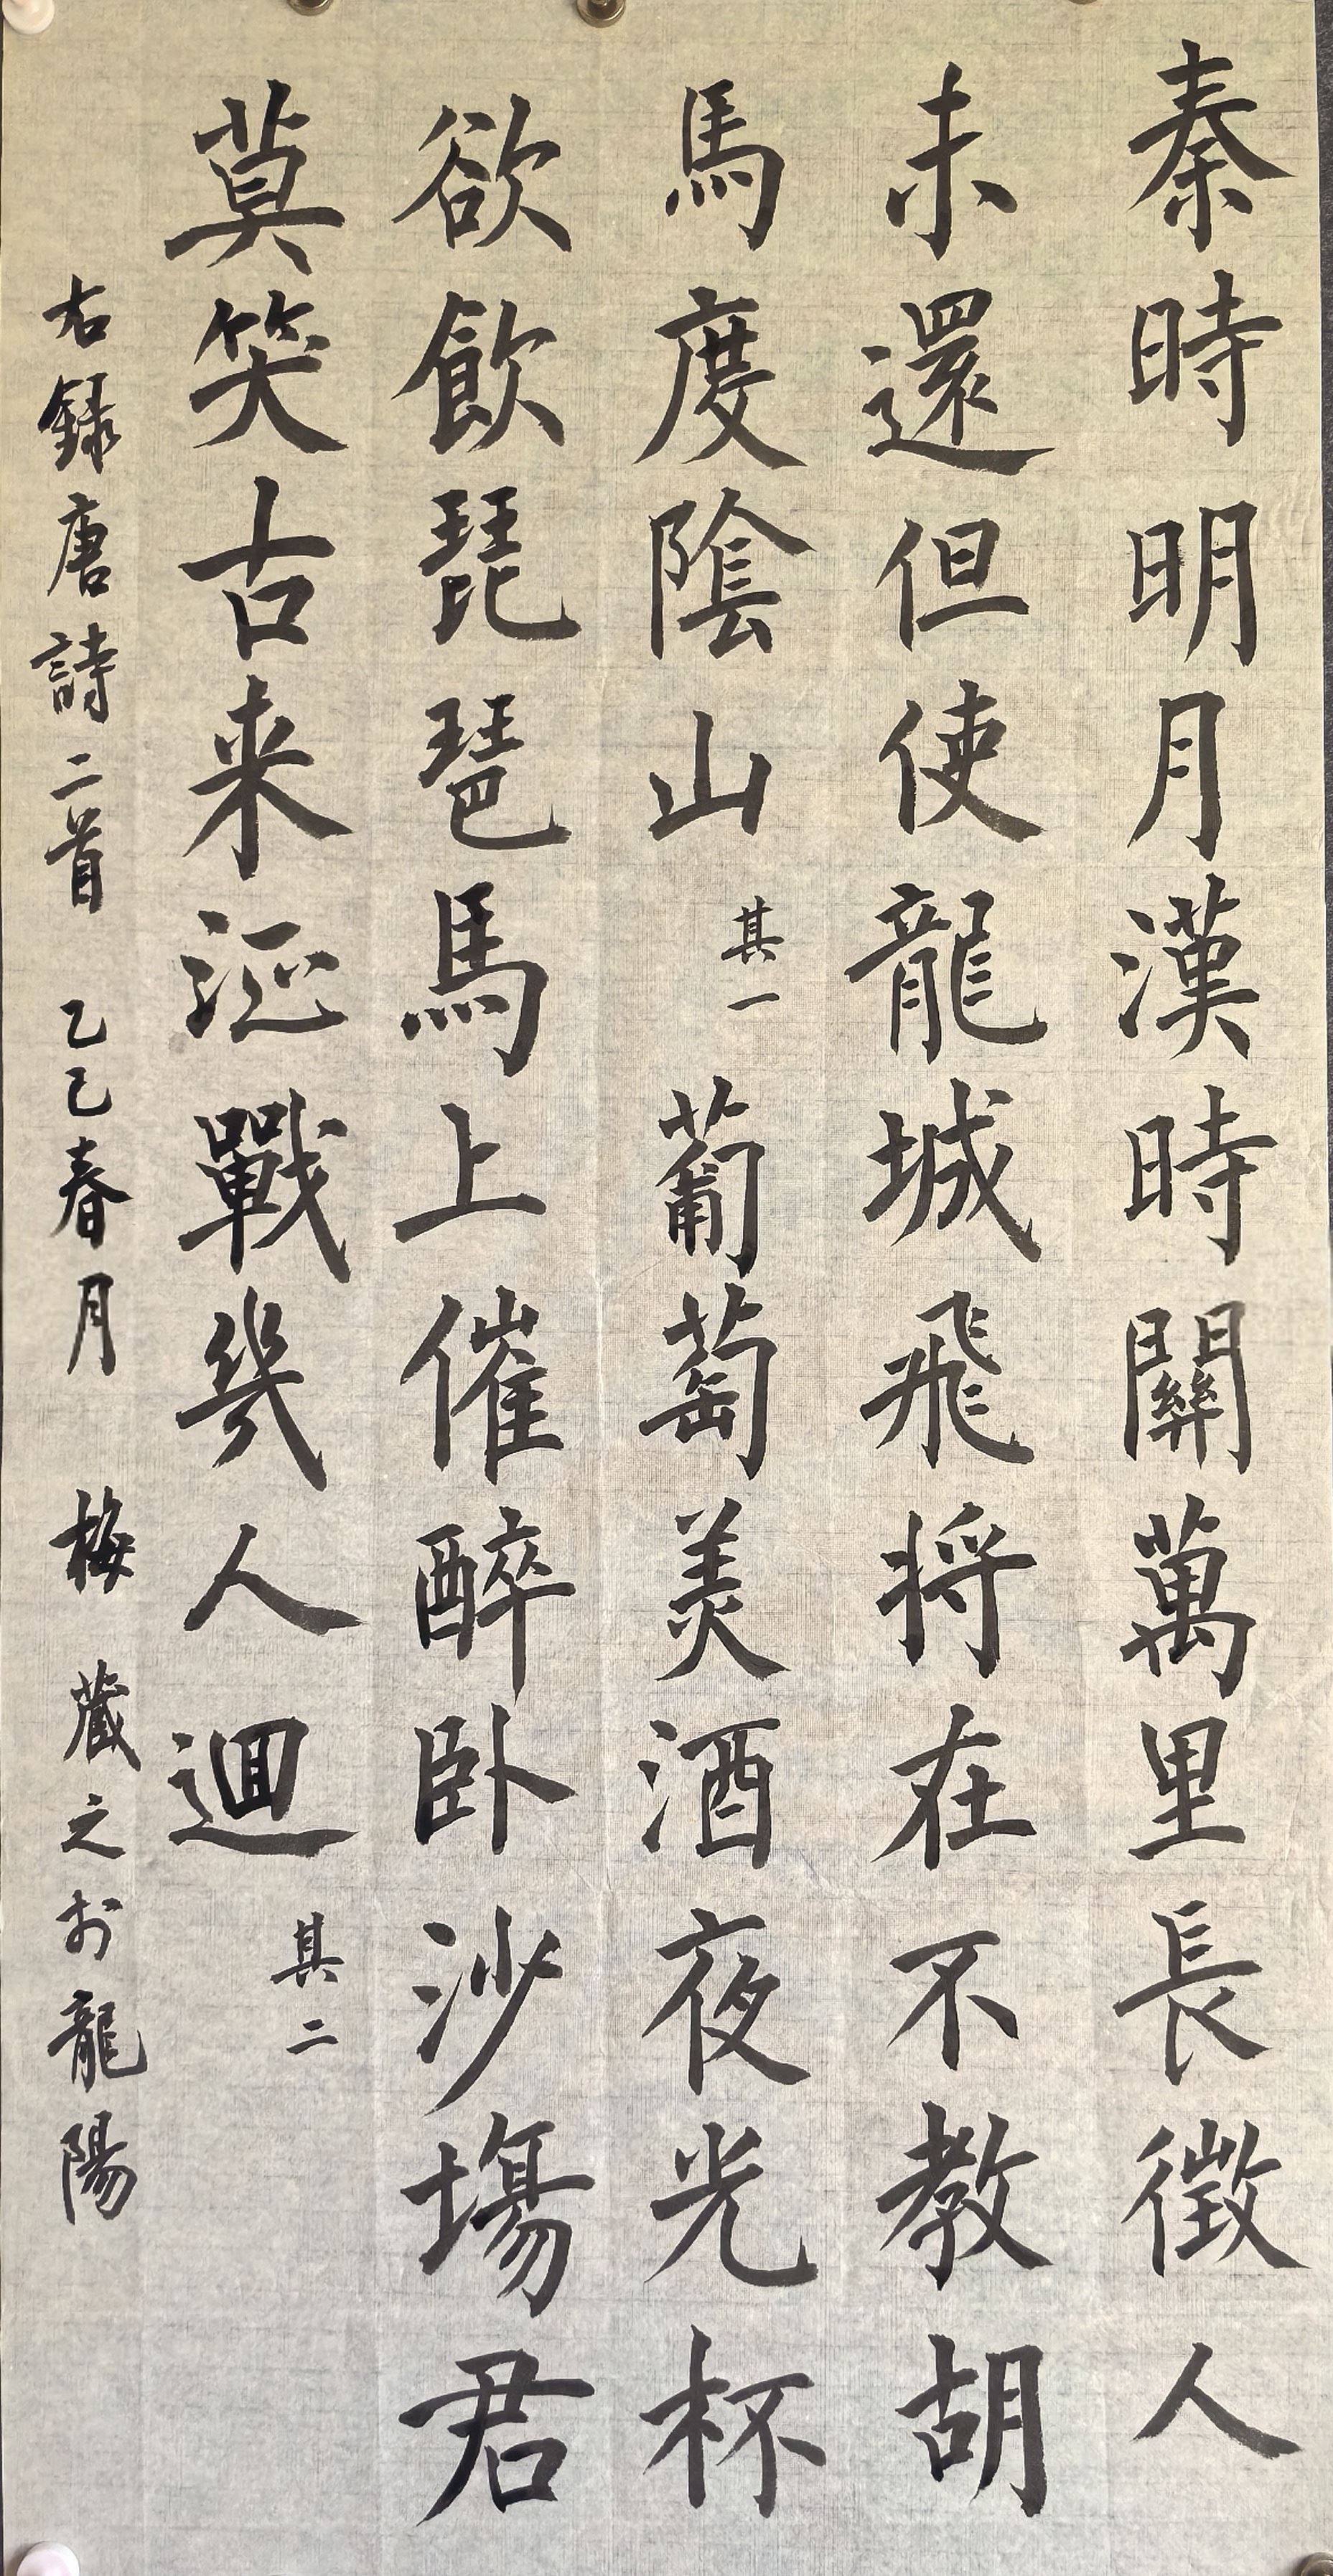 秦時明月漢時關萬里長徵人
未還但使龍城飛将在不教胡
馬度隂山 其一 葡萄美酒夜光杯
欲飲琵琶馬上催醉卧沙塲君
莫笑古来征戰幾人迴 其二
右録唐詩二首 乙巳春月 梅 藏之於龍陽